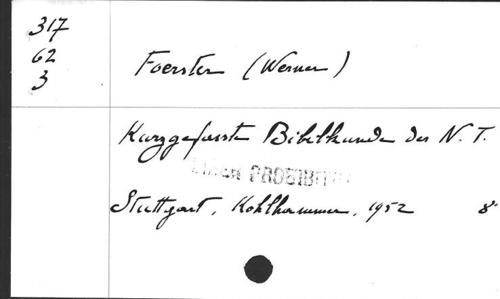 317
62
3
Foerster (Werner)
Kurzgefasste Bibelkunde des N. T.
LIBER PROHIBITUS
Stuttgart, Kohlhammer, 1952 8°